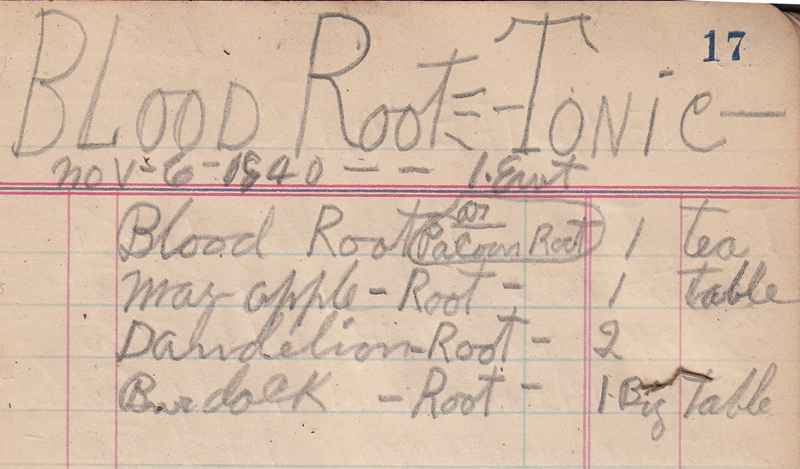 17
Blood Root-Tonic-
Nov-6-1940 - - 1.
Blood Root or Pacoon Root 1 tea
May-apple-Root- 1 table
Dandelion-Root- 2
Burdock -Root- 1-Big Table